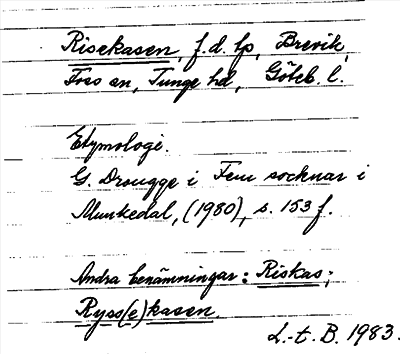 Risekasen, f.d. lp, Brevik,
Foss sn, Tunge hd, Göteb. l.
Etymologi.
G. Drougge i Fem socknar i
Munkedal, (1980), s. 153 f.
Andra benämningar: Riskas;
Ryss(e)kasen.
L.-t. B. 1983.